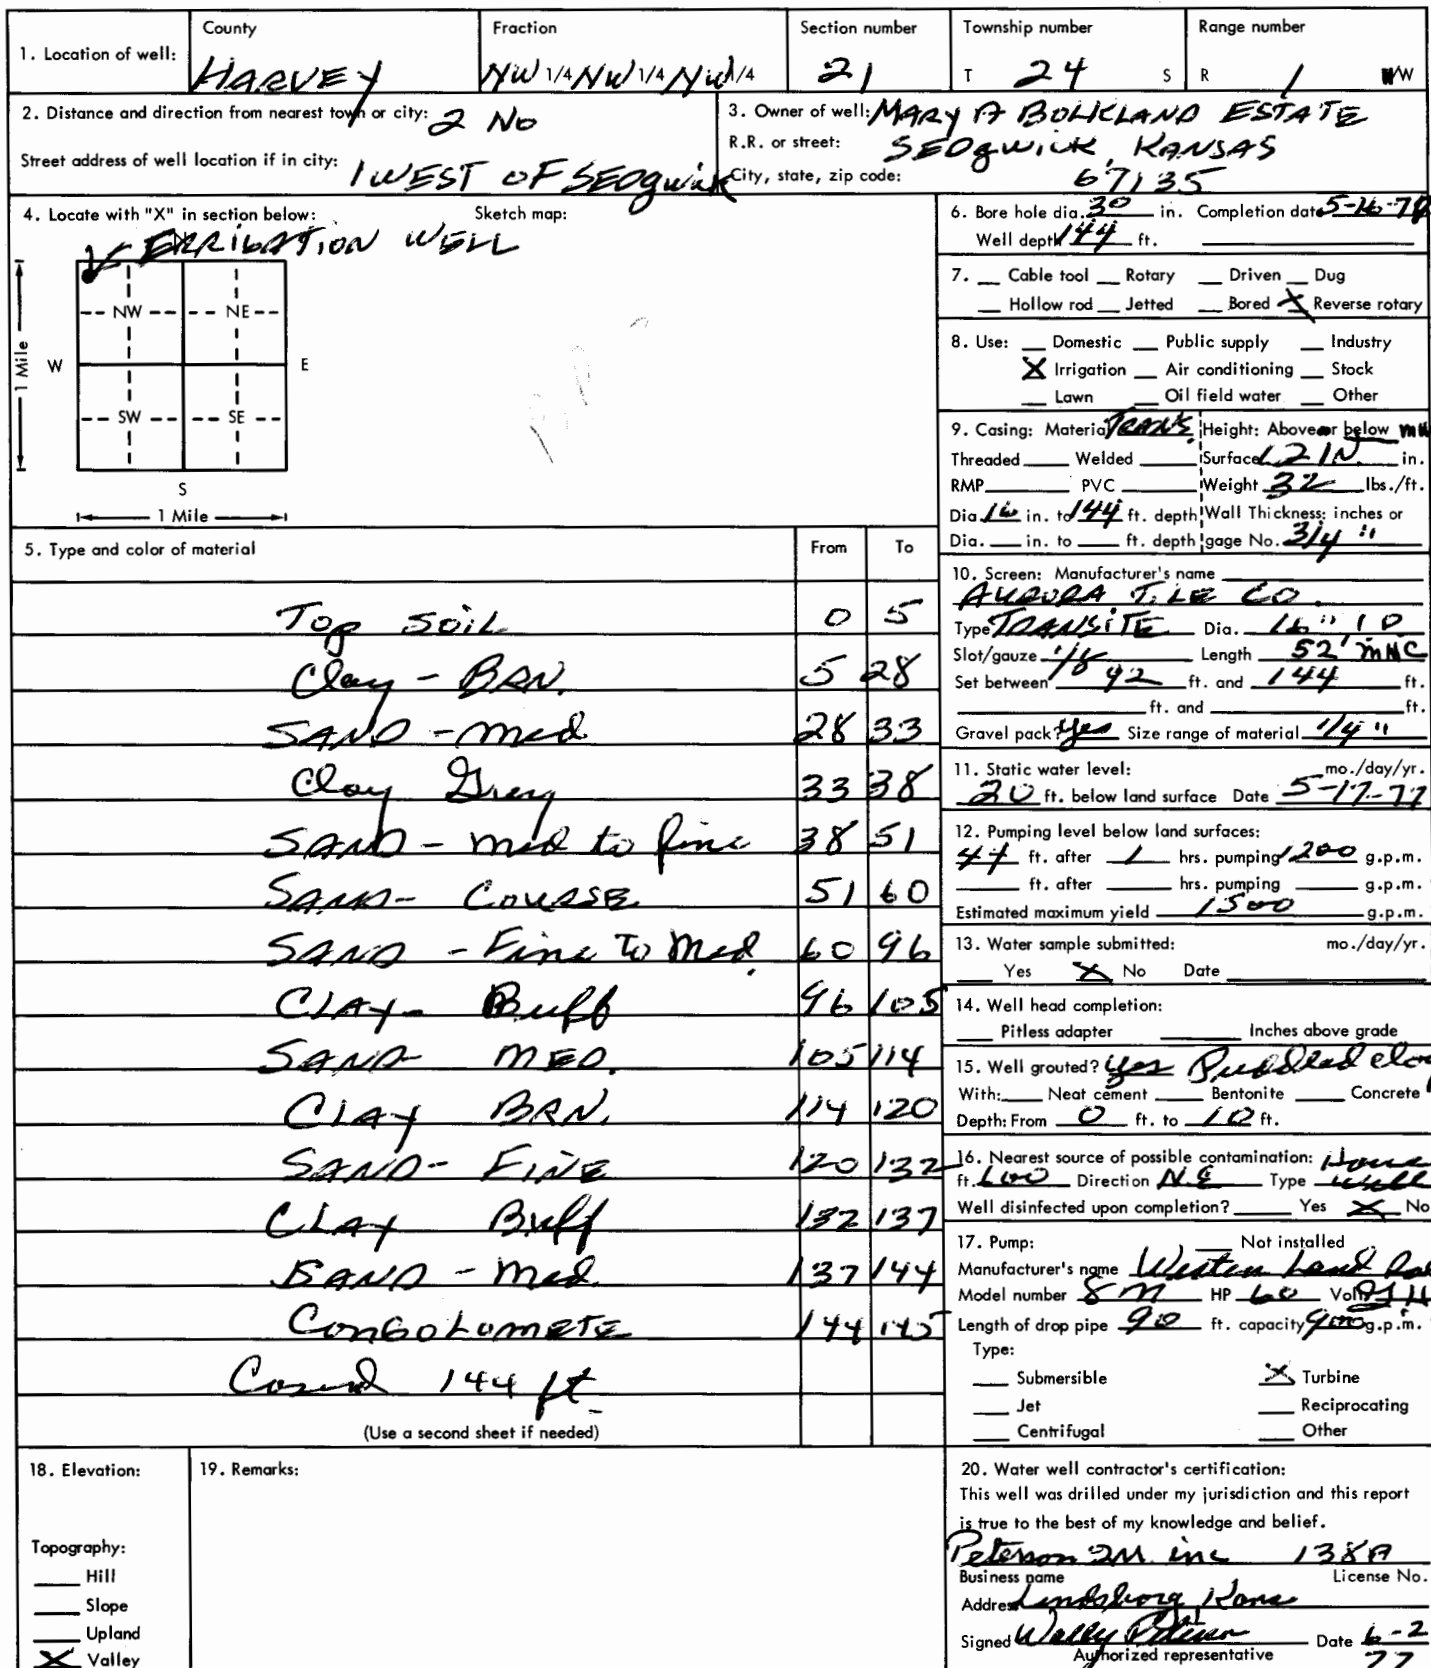 County Fraction Section number Township number Range number
1. Location of well: HARVEY NW 1/4 NW 1/4 NW 1/4 21 T 24 S R 1 W
2. Distance and direction from nearest town or city: 2 No
Street address of well location if in city: 1 WEST OF SEDgwick
3. Owner of well: MARY A BOLKLAND ESTATE
R.R. or street: SEDgwick, KANSAS
City, state, zip code: 67135
4. Locate with "X" in section below: Sketch map:
ERRIGATION WELL
NW NE
1 Mile W E
SW SE
S
1 Mile
5. Type and color of material From To
Top SOIL 0 5
Clay - BRN. 5 28
SAND - Med 28 33
Clay Grey 33 38
SAND - Med to fine 38 51
SAND - COURSE 51 60
SAND - Fine To Med. 60 96
CLAY - Buff 96 105
SAND MED. 105 114
CLAY BRN. 114 120
SAND - FINE 120 132
CLAY Buff 132 137
SAND - Med 137 144
CONGOLOMETE 144 145
Cased 144 ft
(Use a second sheet if needed)
6. Bore hole dia. 30 in. Completion date
Well depth 144 ft.
7. Cable tool Rotary Driven Dug
Hollow rod Jetted Bored X Reverse rotary
8. Use: Domestic Public supply Industry
X Irrigation Air conditioning Stock
Lawn Oil field water Other
9. Casing: Material TRANS. Height: Above or below
Threaded Welded Surface 12 IN. in.
RMP PVC Weight 32 lbs./ft.
Dia. 16 in. to 144 ft. depth Wall Thickness: inches or
Dia. in. to ft. depth gage No. 3/4 "
10. Screen: Manufacturer's name
AURORA TILE CO.
Type TRANSITE Dia. 16" ID
Slot/gauze 1/8 Length 52'
Set between 92 ft. and 144 ft.
ft. and ft.
Gravel pack? Yes Size range of material 1/4 "
11. Static water level: mo./day/yr.
20 ft. below land surface Date 5-17-77
12. Pumping level below land surfaces:
47 ft. after 1 hrs. pumping 1200 g.p.m.
ft. after hrs. pumping g.p.m.
Estimated maximum yield 1500 g.p.m.
13. Water sample submitted: mo./day/yr.
Yes X No Date
14. Well head completion:
Pitless adapter Inches above grade
15. Well grouted? Yes Puddled clay
With: Neat cement Bentonite Concrete
Depth: From 0 ft. to 10 ft.
16. Nearest source of possible contamination: House
ft. 600 Direction N.E Type well
Well disinfected upon completion? Yes X No
17. Pump: Not installed
Manufacturer's name Western Land
Model number 8 M HP 60 Volts
Length of drop pipe 90 ft. capacity 900 g.p.m.
Type:
Submersible X Turbine
Jet Reciprocating
Centrifugal Other
18. Elevation:
Topography:
Hill
Slope
Upland
X Valley
19. Remarks:
20. Water well contractor's certification:
This well was drilled under my jurisdiction and this report
is true to the best of my knowledge and belief.
Peterson inc 138A
Business name License No.
Address Lindsborg Kans
Signed Wally Peterson Date 6-2
Authorized representative 77